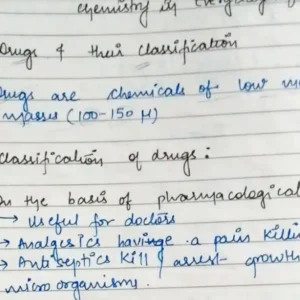 chemistry in everyday
Drugs & their classification
Drugs are chemicals of low
masses (100-150 μ)
Classification of drugs :
On the basis of pharmacological
→ useful for doctors
→ Analgesics havinge a pain killin
→ Antiseptics kill / arrest growth
micro organisms.